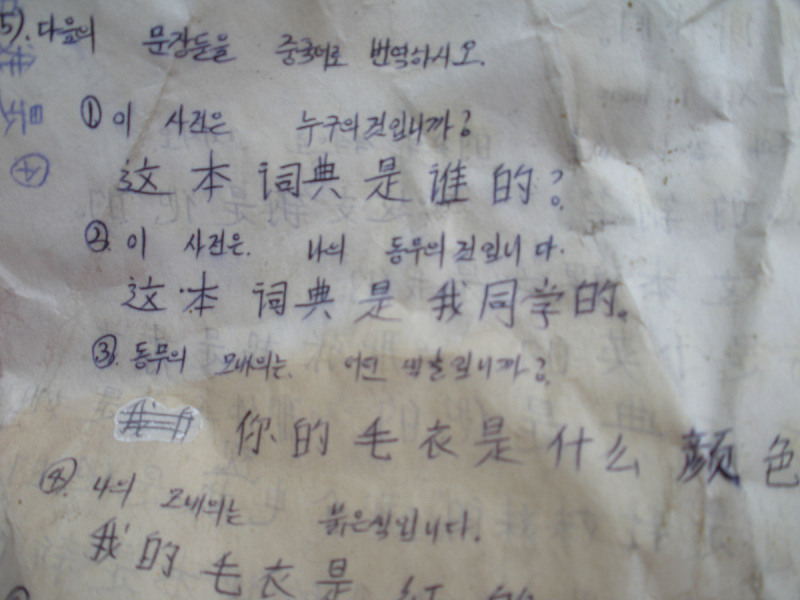 5). 다음의 문장들을 중국어로 번역하시오.
① 이 사전은 누구의것입니까?
这本词典是谁的?
② 이 사전은. 나의 동무의것입니다.
这本词典是我同学的。
③. 동무의 모내의는. 어떤 색갈입니까?
你的毛衣是什么颜色
④. 나의 모내의는 붉은색입니다.
我的毛衣是红的